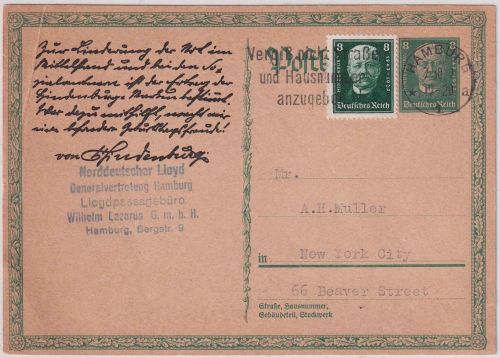 Zur Linderung der Not im
Mittelstand und bei den So-
zialrentnern ist der Ertrag der
Hindenburg-Spenden bestimmt.
Wer dazu mithilft, macht mir
eine besondere Geburtstagsfreude!
von Hindenburg.
Norddeutscher Lloyd
Generalvertretung Hamburg
Lloydpassagebüro
Wilhelm Lazarus G. m. b. H.
Hamburg, Bergstr. 9
Postkarte
Vergiß nicht Straße
und Hausnummer
anzugeben
8 8
Deutsches Reich
8 8
Deutsches Reich
HAMBURG
Mr.
A.H.Muller
New York City
in
66 Beaver Street
Straße, Hausnummer,
Gebäudeteil, Stockwerk